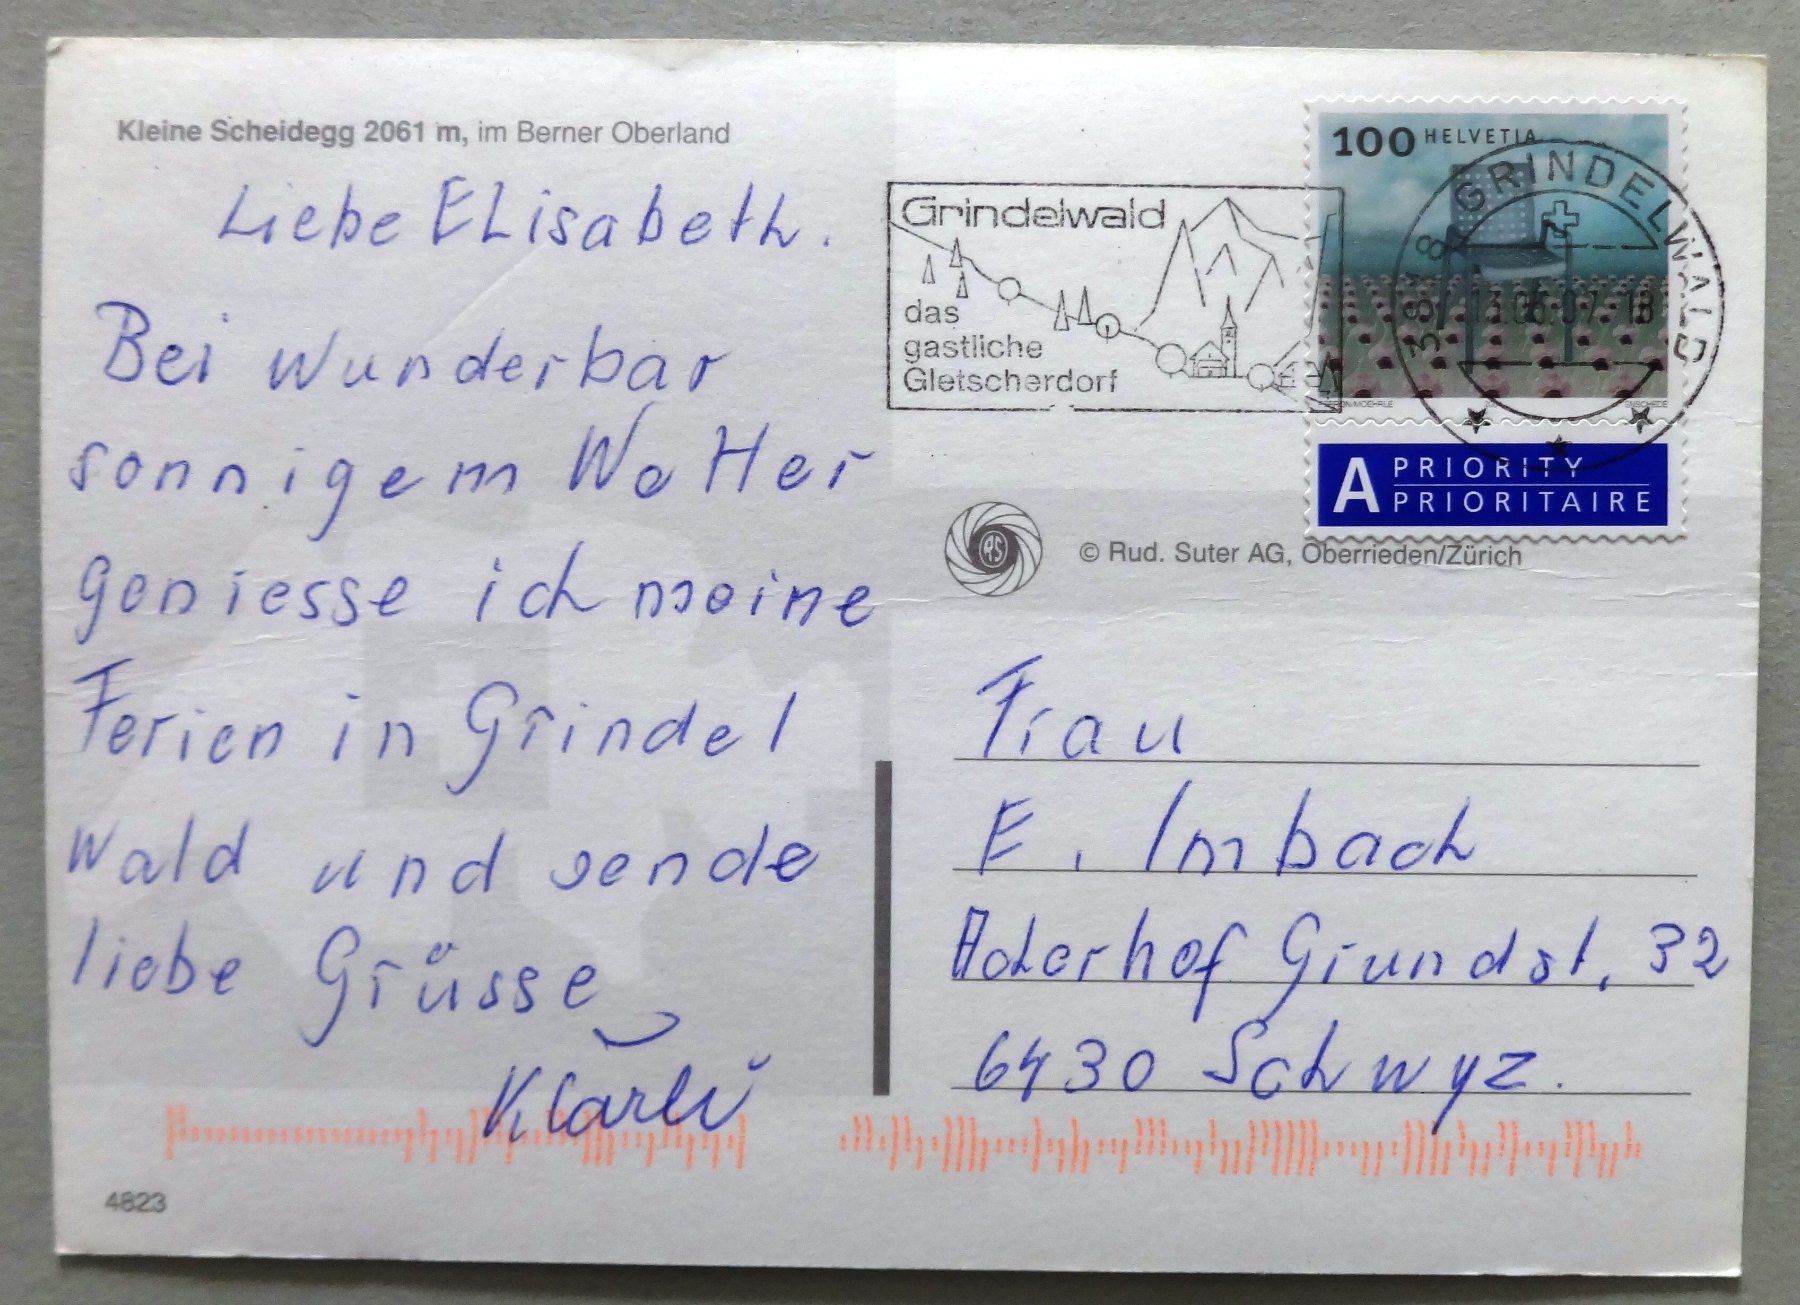 Kleine Scheidegg 2061 m, im Berner Oberland
Liebe Elisabeth.
Bei wunderbar
sonnigem Wetter
geniesse ich meine
Ferien in Grindel
wald und sende
liebe Grüsse
Klärli
4823
Grindelwald
das
gastliche
Gletscherdorf
100 HELVETIA
3818 GRINDELWALD
A PRIORITY
PRIORITAIRE
© Rud. Suter AG, Oberrieden/Zürich
Frau
E. Imbach
Acherhof Grundst. 32
6430 Schwyz.